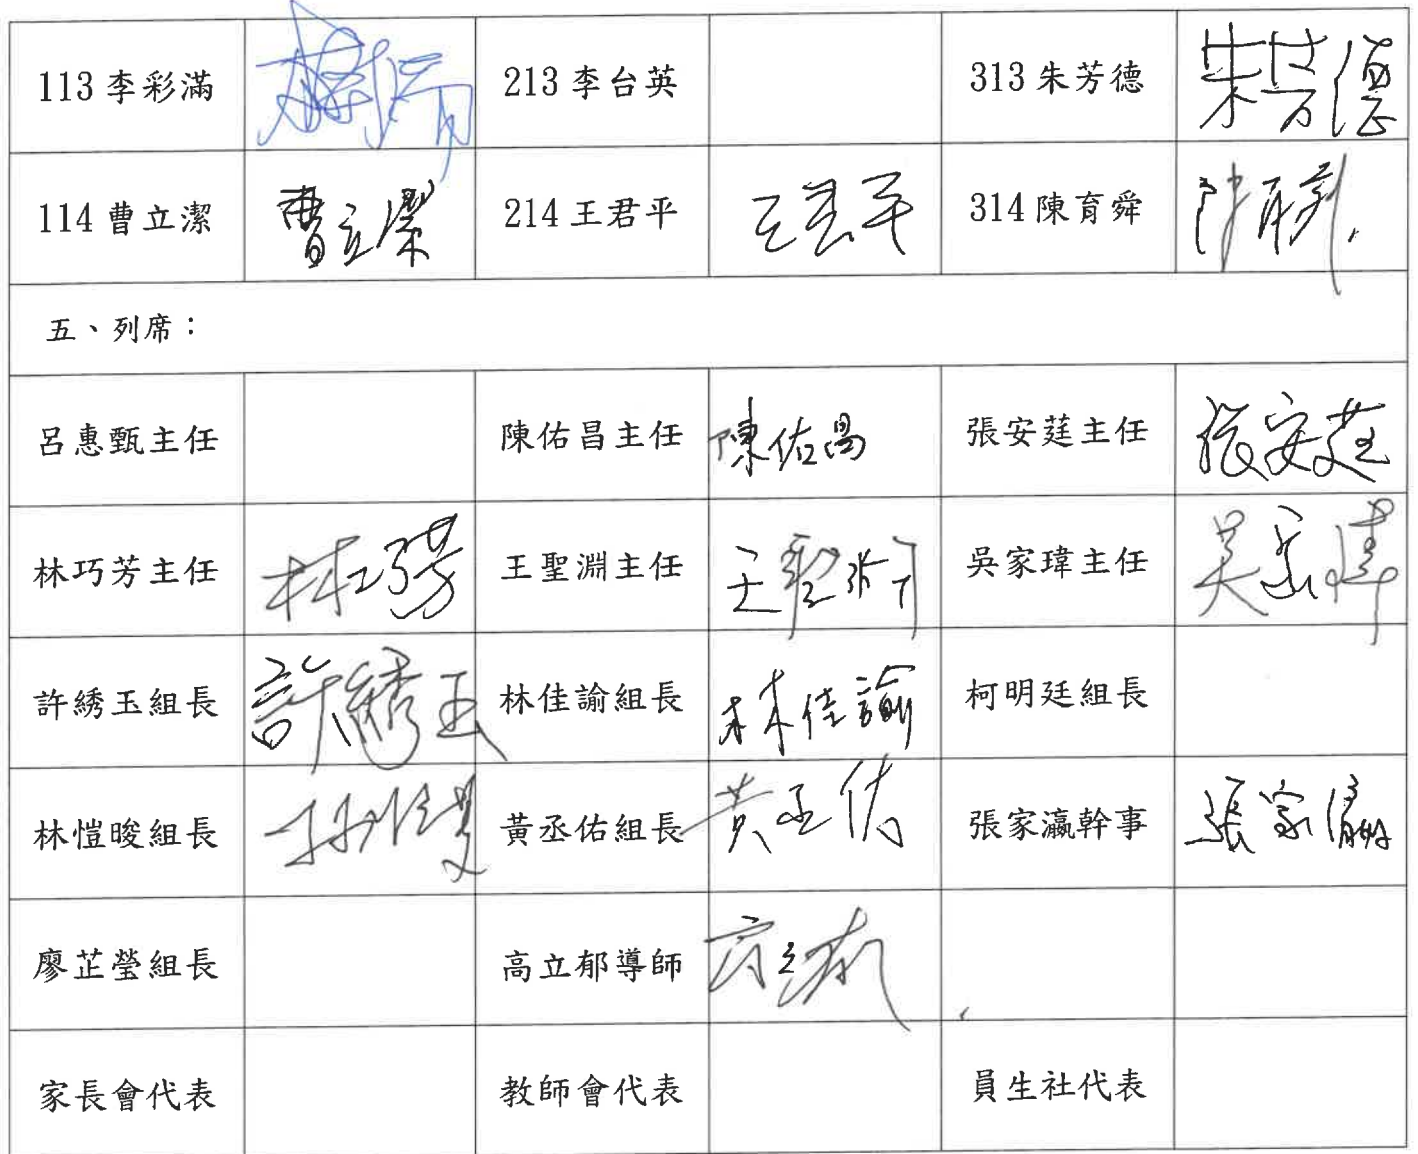 113 李彩滿 213 李台英 313 朱芳德 朱芳德
114 曹立潔 曹立潔 214 王君平 王君平 314 陳育舜
五、列席：
呂惠甄主任 陳佑昌主任 陳佑昌 張安莛主任 張安莛
林巧芳主任 林巧芳 王聖淵主任 王聖淵 吳家瑋主任 吳家瑋
許綉玉組長 許綉玉 林佳諭組長 林佳諭 柯明廷組長
林愷晙組長 黃丞佑組長 黃丞佑 張家瀛幹事 張家瀛
廖芷瑩組長 高立郁導師
家長會代表 教師會代表 員生社代表